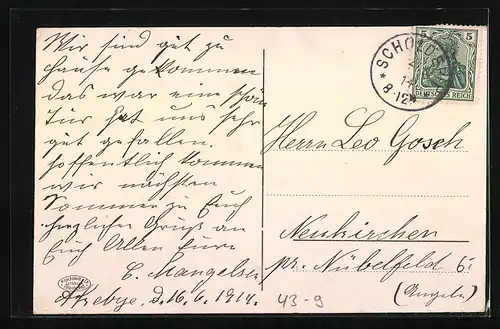 Wir sind gut zu
Hause gekommen
das war eine schöne
Tür hat uns sehr
gut gefallen.
hoffentlich kommen
wir nächsten
Sommer zu Euch
herzlichen Gruß an
Euch Allen Eure
C. Mangelsen
d. 16.6.1914.
SCHOLD
8-12
5 5
DEUTSCHES REICH
Herrn Leo Gosch
Neukirchen
pr. Nübelfeld
(Angeln)
43-9